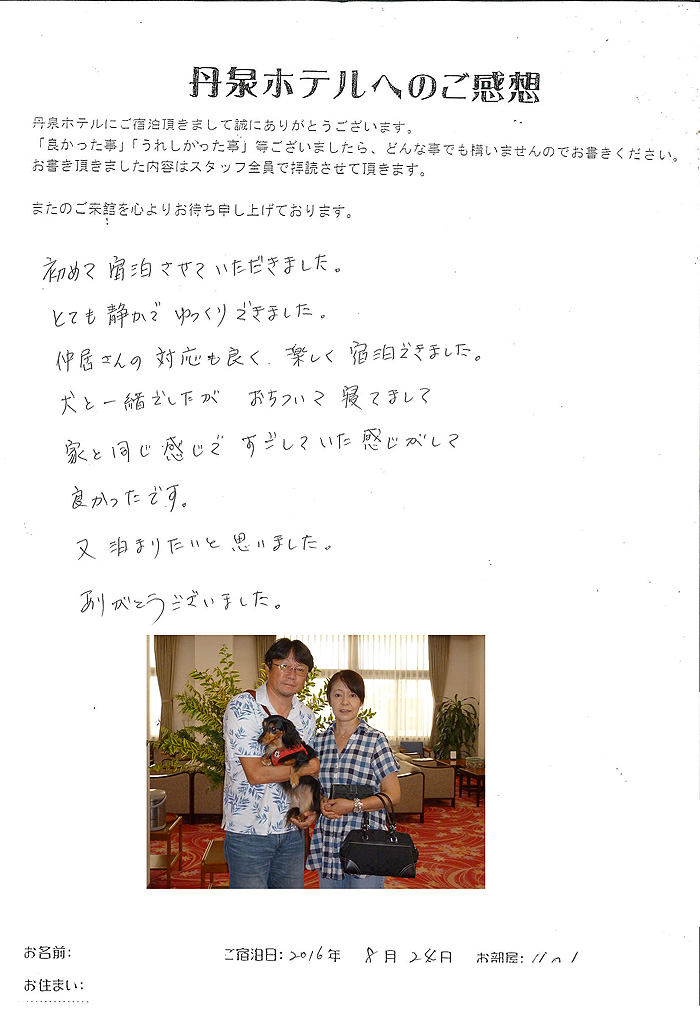 丹泉ホテルへのご感想
丹泉ホテルにご宿泊頂きまして誠にありがとうございます。
「良かった事」「うれしかった事」等ございましたら、どんな事でも構いませんのでお書きください。
お書き頂きました内容はスタッフ全員で拝読させて頂きます。
またのご来館を心よりお待ち申し上げております。
初めて宿泊させていただきました。
とても静かで ゆっくりできました。
仲居さんの対応も良く、楽しく宿泊できました。
犬と一緒でしたが おちついて寝てまして
家と同じ感じで すごしていた感じがして
良かったです。
又 泊まりたいと思いました。
ありがとうございました。
お名前: ご宿泊日: 2016年 8月 24日 お部屋:
お住まい: